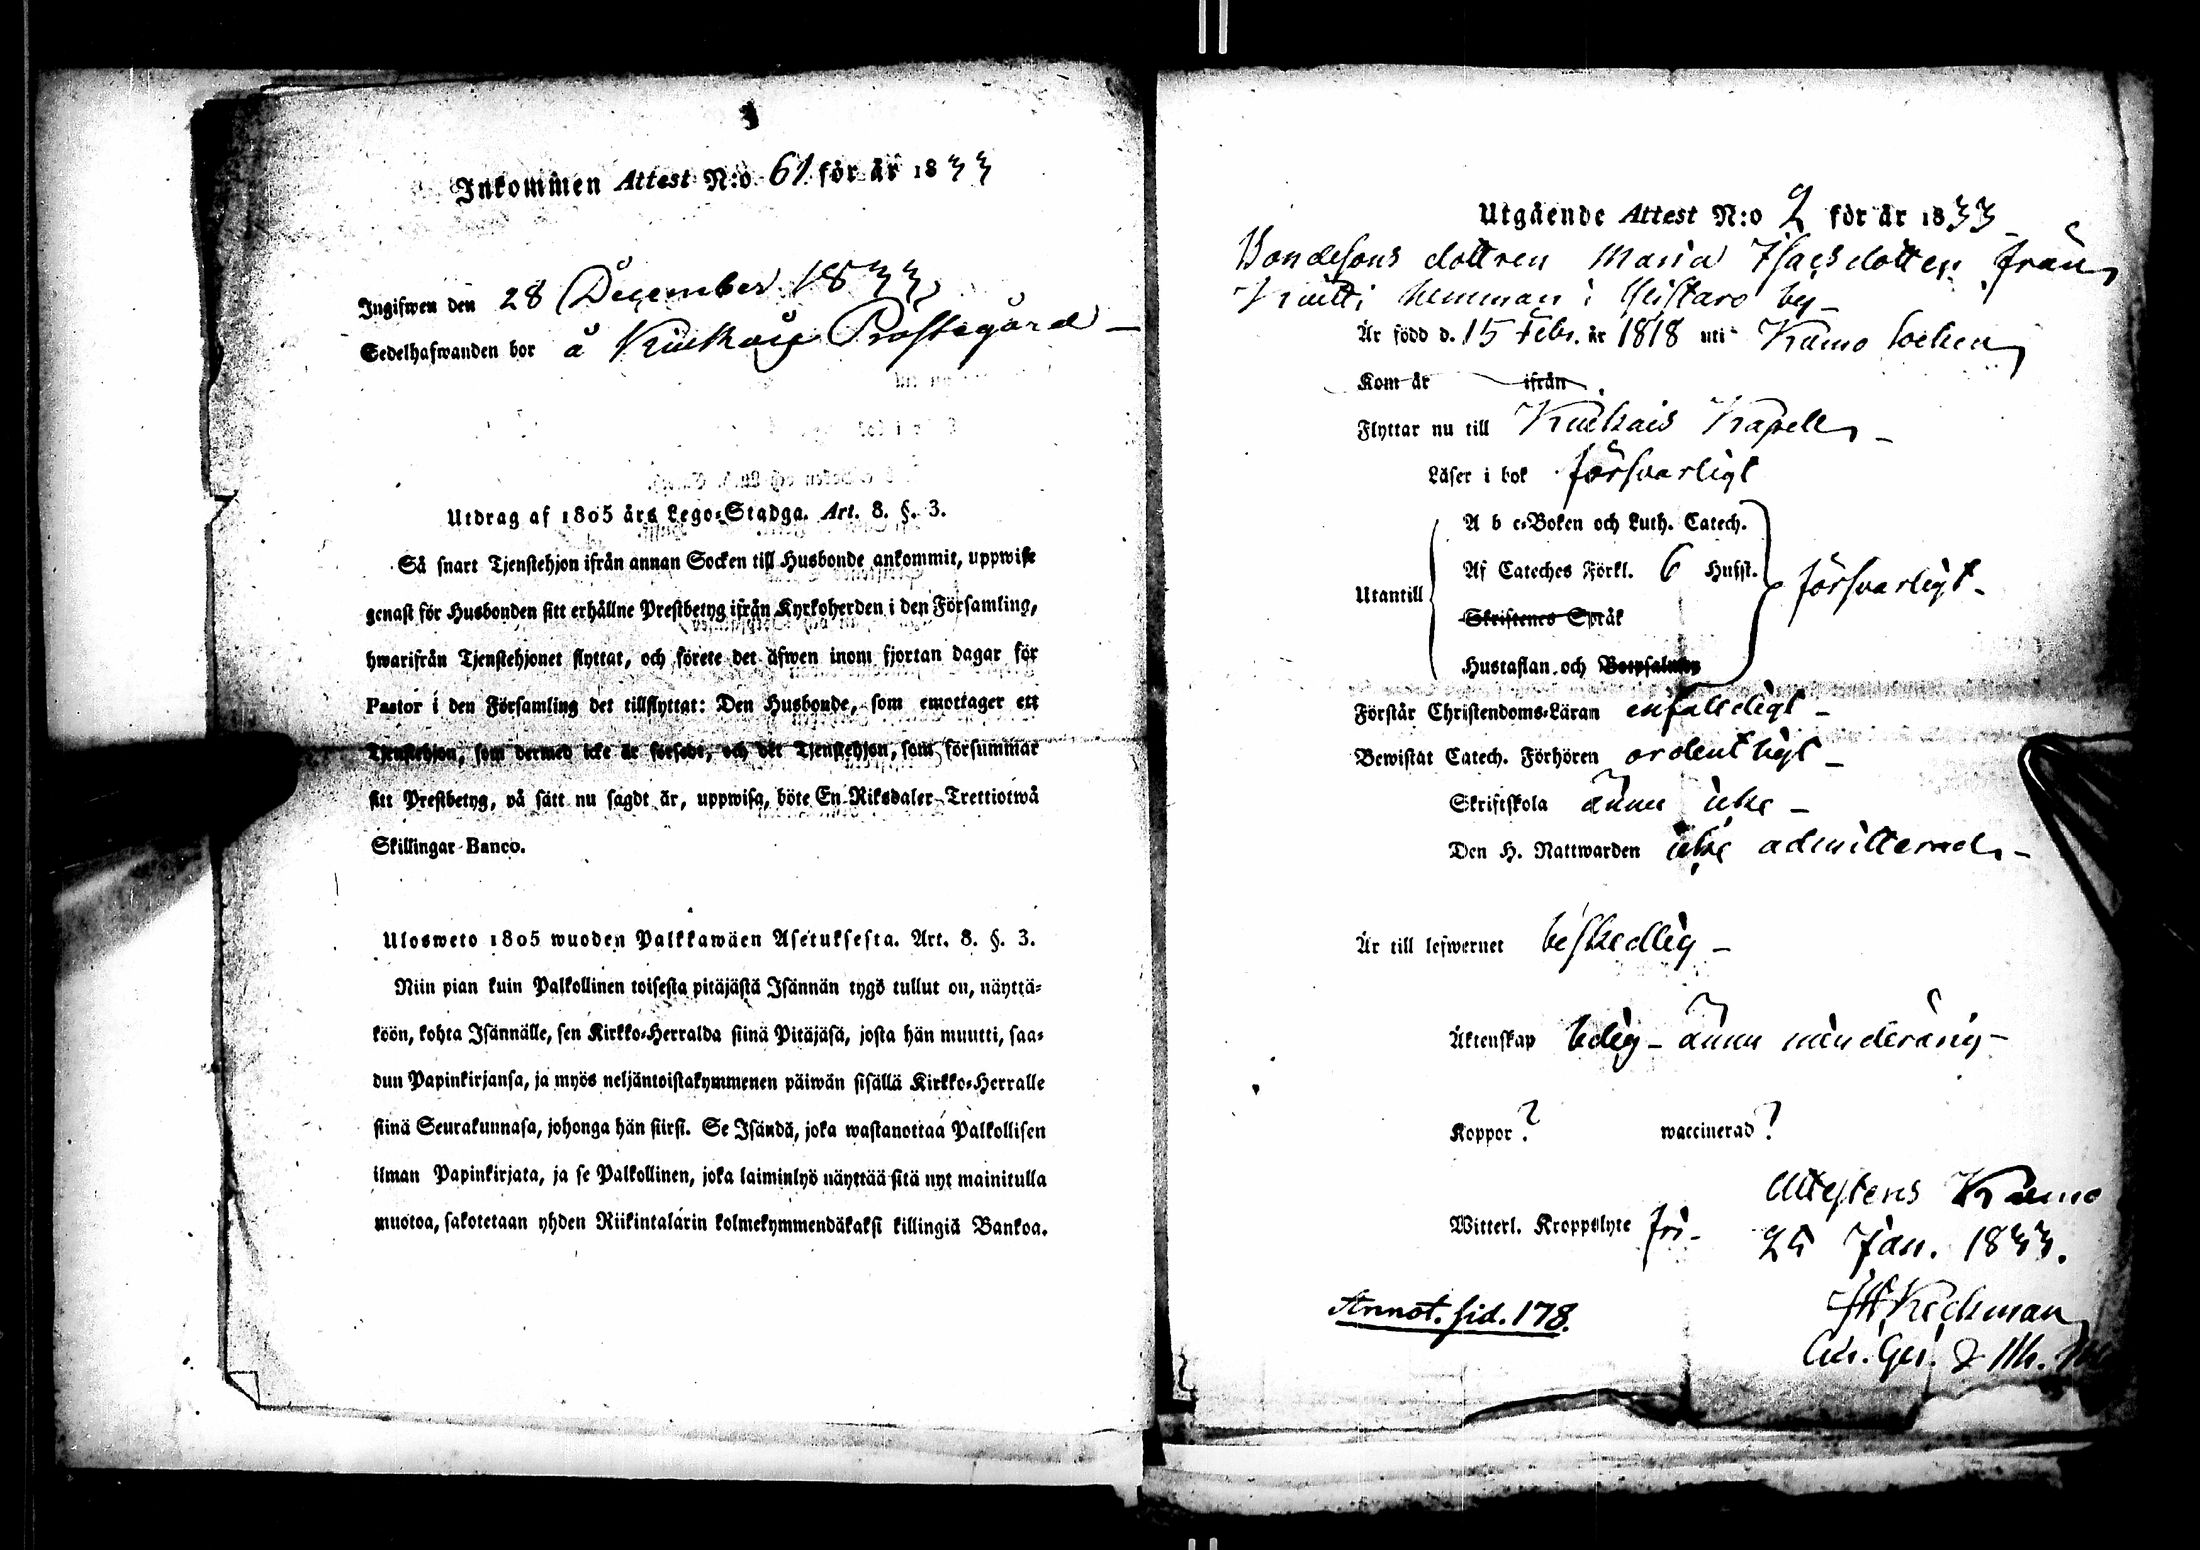 Inkommen Attest N:o 61 för år 1833
Ingifwen den 28 December 1833
Sedelhafwanden bor å Kiukais Prostegård
Utdrag af 1805 års Lego-Stadga. Art. 8. §. 3.
Så snart Tjenstehjon ifrån annan Socken till Husbonde ankommit, uppwise
genast för Husbonden sitt erhållne Prestbetyg ifrån Kyrkoherden i den Församling,
hwarifrån Tjenstehjonet flyttat, och förete det äfwen inom fjortan dagar för
Pastor i den Församling det tillflyttat: Den Husbonde, som emottager ett
Tjenstehjon, som dermed icke är försedt, och det Tjenstehjon, som försummar
sitt Prestbetyg, på sätt nu sagdt är, uppwisa, böte En Riksdaler Trettiotwå
Skillingar Banco.
Ulosweto 1805 wuoden Palkkawäen Asetuksesta. Art. 8. §. 3.
Niin pian kuin Palkollinen toisesta pitäjästä Isännän tygö tullut on, näyttä-
köön, kohta Isännälle, sen Kirkko-Herralda siinä Pitäjäsä, josta hän muutti, saa-
dun Papinkirjansa, ja myös neljäntoistakymmenen päiwän sisällä Kirkko-Herralle
siinä Seurakunnasa, johonga hän siirsi. Se Isändä, joka wastanottaa Palkollisen
ilman Papinkirjata, ja se Palkollinen, joka laiminlyö näyttää sitä nyt mainitulla
muotoa, sakotetaan yhden Riikintalarin kolmekymmendäkaksi killingiä Bankoa.
Utgående Attest N:o 2 för år 1833
Bondesons dottren Maria Isacsdotter från
hemman i by
Är född d. 15 Febr. år 1818 uti Kumo Socken
Kom år ifrån
Flyttar nu till Kiukais Kapell
Läser i bok försvarligt
Utantill
A b c-Boken och Luth. Catech.
Af Cateches Förkl. 6 Hufst.
Skriftenes Språk
Hustaflan och Botpsalmen
försvarligt
Förstår Christendoms-Läran enfalldigt
Bewistat Catech. Förhören ordentligt
Skriftskola ännu icke
Den H. Nattwarden icke admitterad
Är till lefwernet beskedlig
Äktenskap ledig ännu minderårig
Koppor? waccinerad?
Witterl. Kroppslyte fri
Attesteras Kumo
25 Jan. 1833.
Annot. sid. 178.